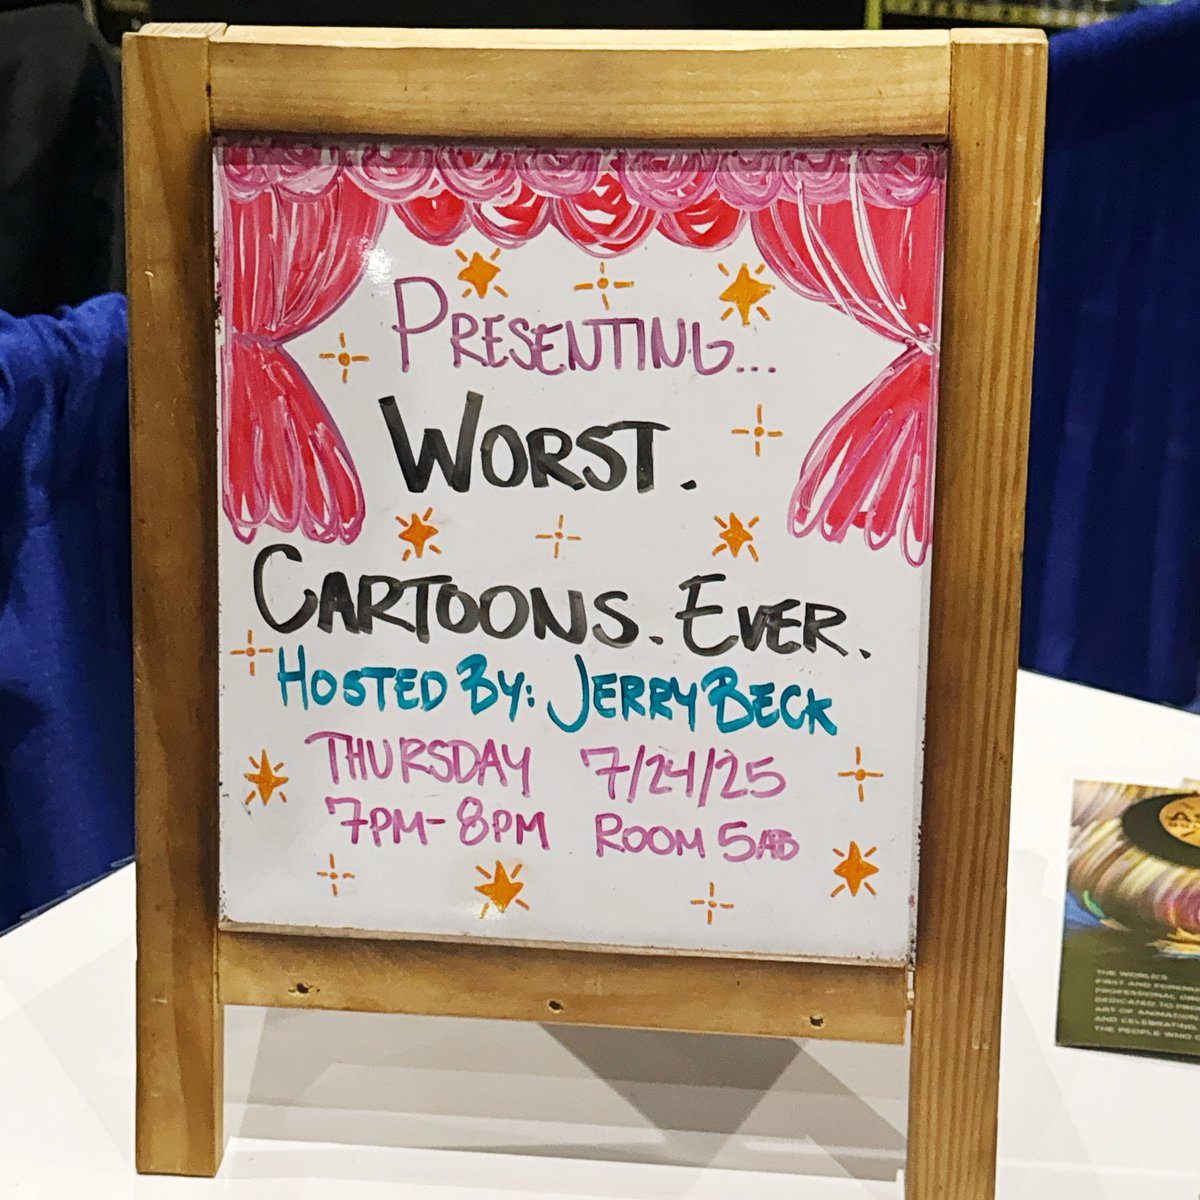 PRESENTING...
WORST.
CARTOONS. EVER.
HOSTED BY: JERRY BECK
THURSDAY 7/24/25
7PM-8PM ROOM 5AB
THE WORLD'S
FIRST AND FOREMOST
PROFESSIONAL
DEDICATED TO
ART OF ANIMATION
AND CELEBRATING
THE PEOPLE WHO